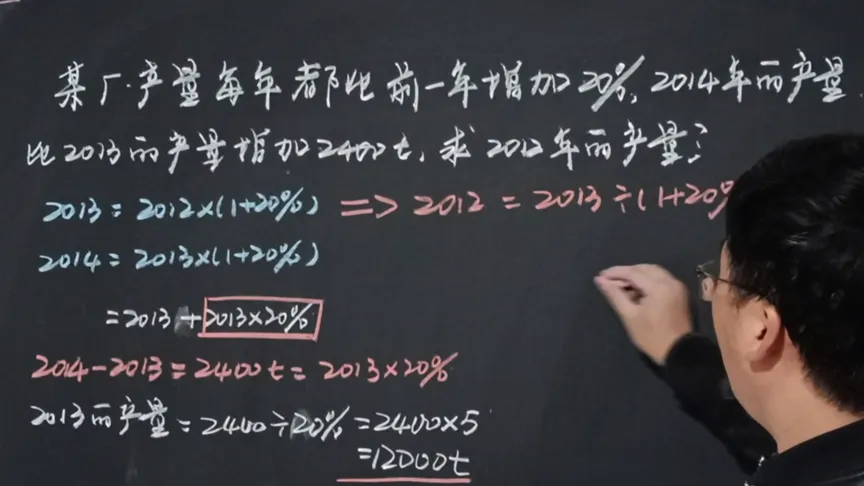 某厂产量每年都比前一年增加20%,2014年的产量
比2013的产量增加2400t,求2012年的产量?
2013=2012×(1+20%) => 2012=2013÷(1+20%
2014=2013×(1+20%)
=2013+2013×20%
2014-2013=2400t=2013×20%
2013的产量=2400÷20%=2400×5
=12000t